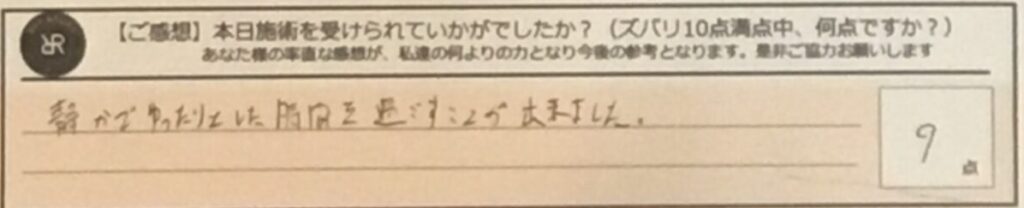 RR
【ご感想】本日施術を受けられていかがでしたか？（ズバリ10点満点中、何点ですか？）
あなた様の率直な感想が、私達の何よりの力となり今後の参考となります。是非ご協力お願いします
静かでゆったりとした時間を過ごすことが出来ました。
9点